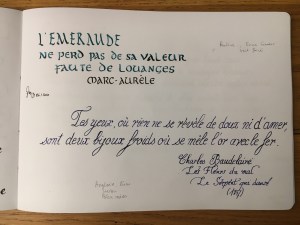 L'ÉMERAUDE
NE PERD PAS DE SA VALEUR
FAUTE DE LOUANGES
MARC-AURÈLE
Tes yeux, où rien ne se révèle de doux ni d'amer,
sont deux bijoux froids où se mêle l'or avec le fer.
Charles Baudelaire
Les Fleurs du mal
Le Serpent qui danse
(1857)